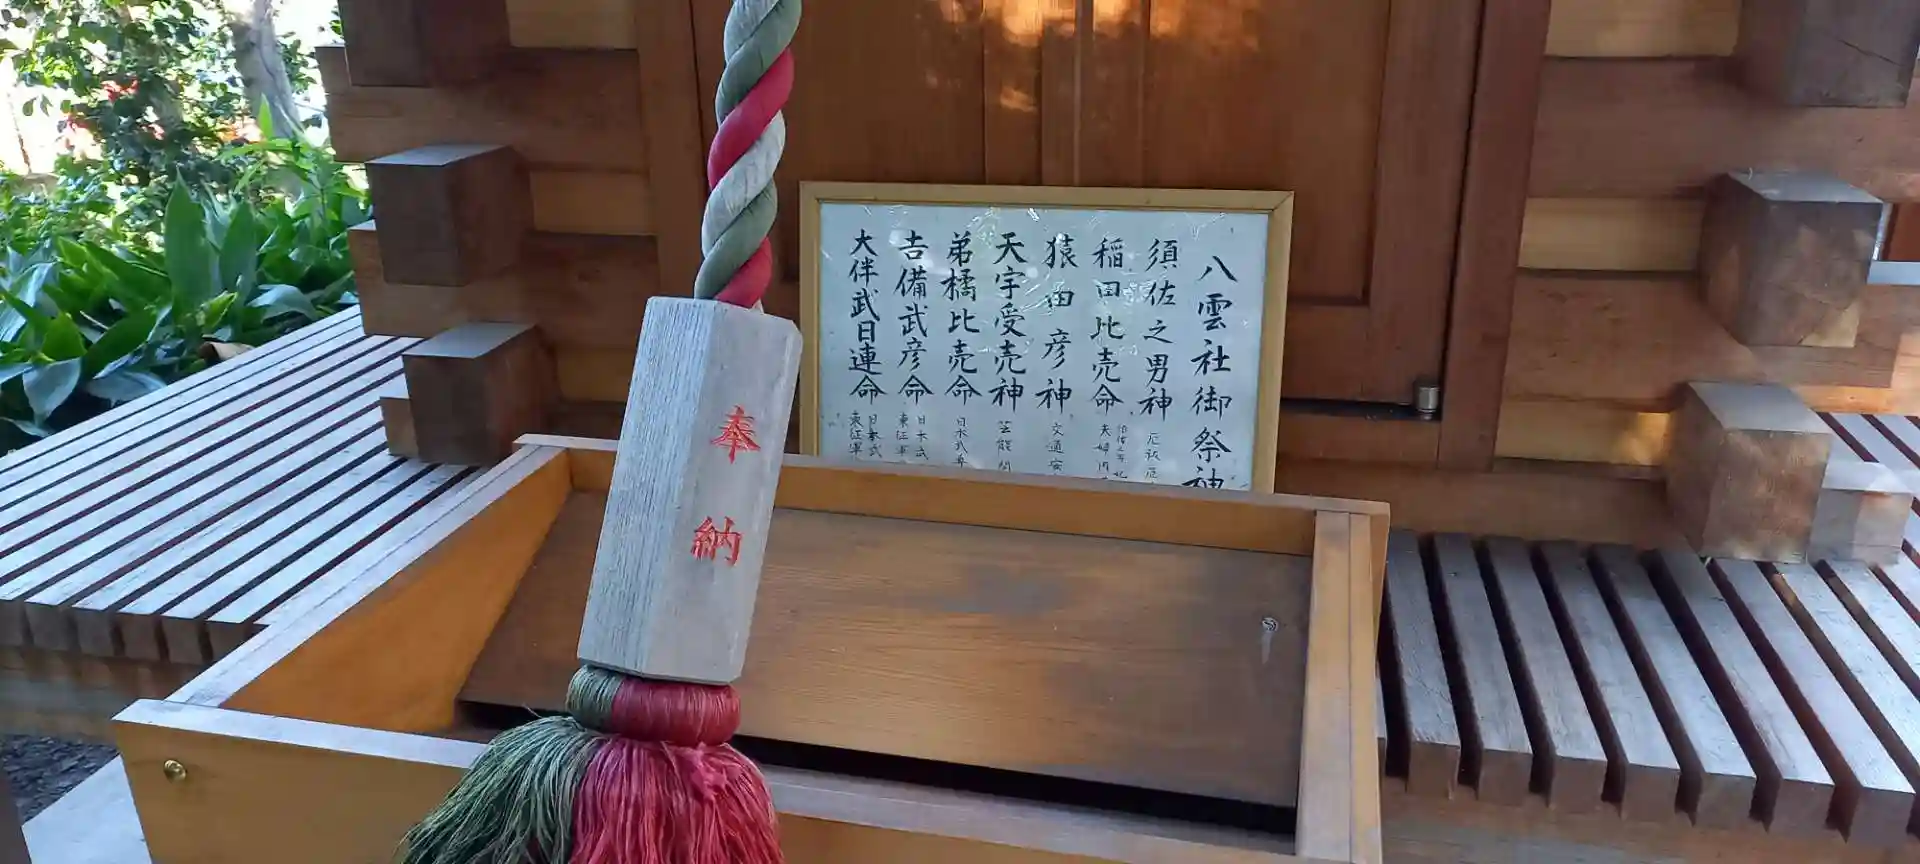 八雲社御祭神
須佐之男神 厄祓厄
稲田比売命
夫婦円
猿田彦神 交通安
天宇受売神 芸能関
弟橘比売命 日本武尊
吉備武彦命 日本武
東征軍
大伴武日連命 日本武
東征軍
奉納